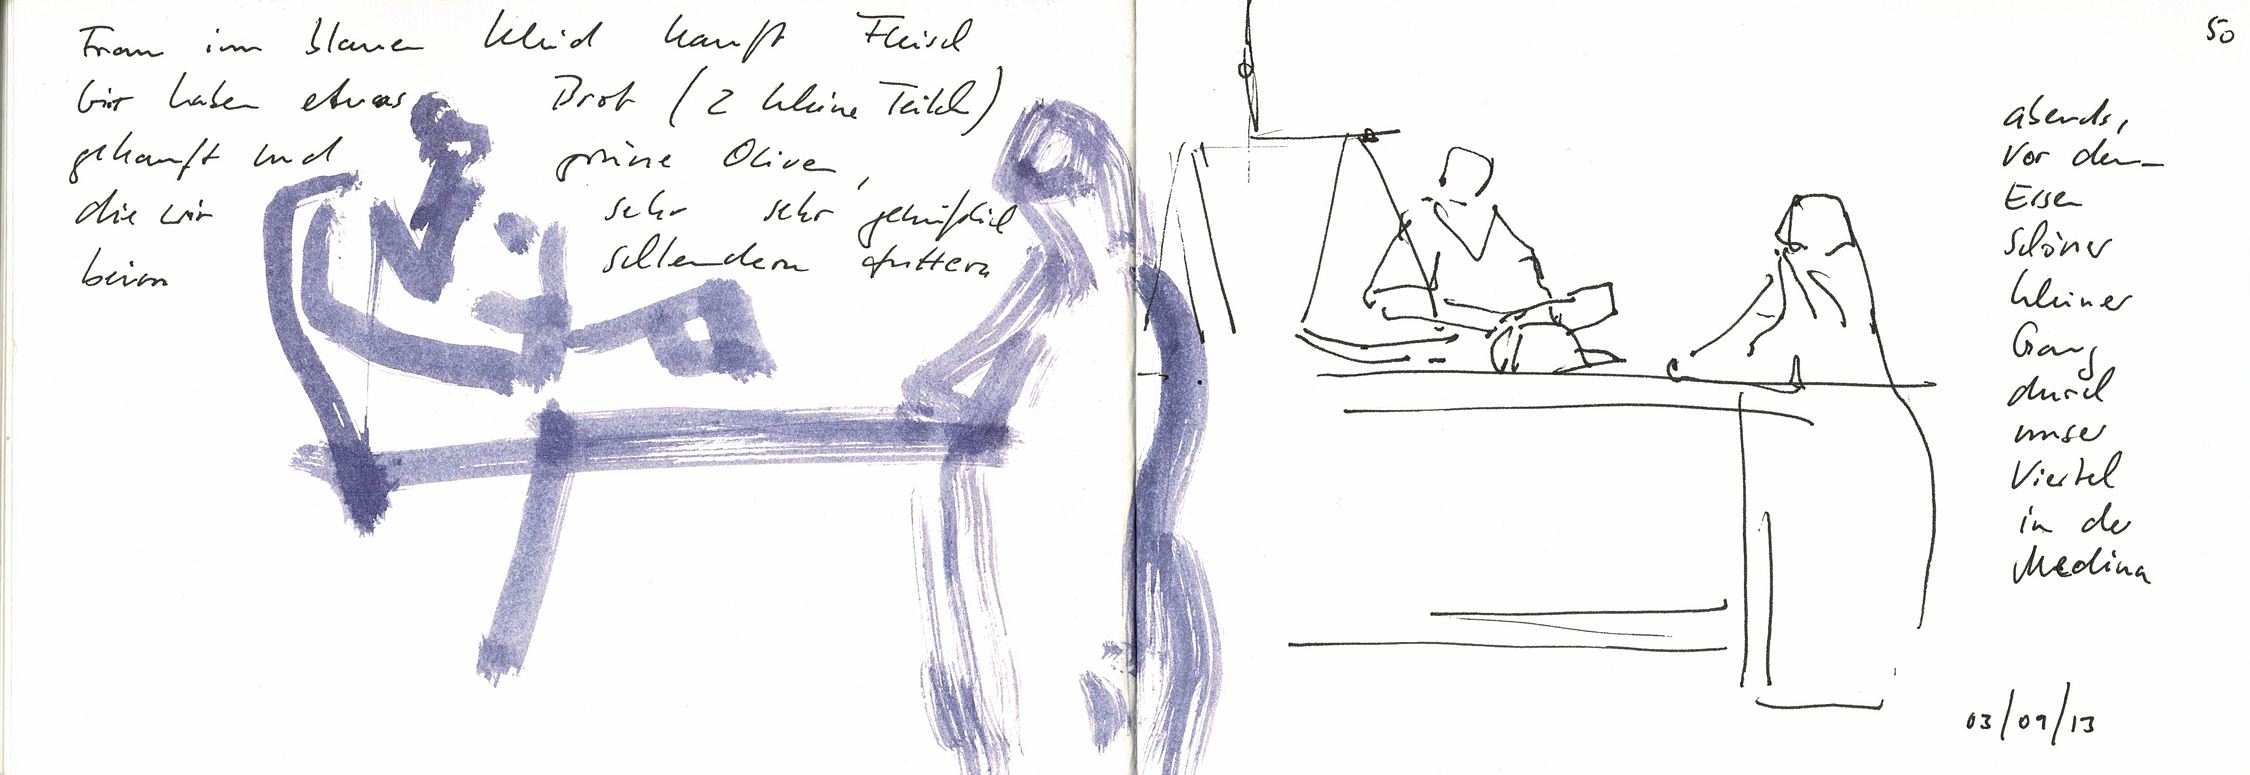 Frau im blauen Kleid kauft Fleisch
Wir haben etwas Brot (2 kleine Teile)
gekauft und grüne Oliven,
die wir sehr sehr genüßlich
beim schlendern futtern
50
abends,
vor dem
Essen
schöner
kleiner
Gang
durch
unser
Viertel
in der
Medina
03/09/13